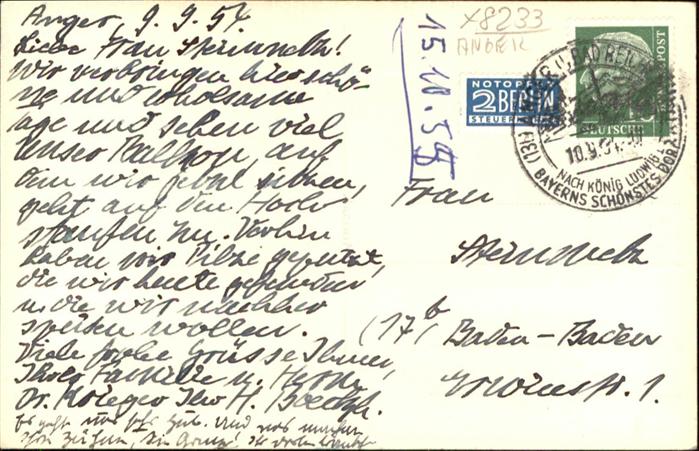 Anger, 9.9.54.
Liebe Frau Steinmetz!
Wir verbringen hier schö-
ne und erholsame
Tage und sehen viel
Unser Balkon, auf
dem wir jetzt sitzen,
geht auf den Hoch-
staufen zu. Vorhin
haben wir Pilze geputzt,
die wir heute gefunden
u. die wir nachher
speisen wollen.
Viele frohe Grüsse Ihnen,
Ihrer Familie u. Herrn
Dr. Krieger Ihr H.
Es geht uns sehr gut. Und
X8233
ANGER
15.10.55
NOTOPFER
2 BERLIN
STEUERMARKE
DEUTSCHE BUNDESPOST
10.9.54
NACH KÖNIG LUDWIG I.
BAYERNS SCHÖNSTES DORF
(13b) ANGER ü. BAD REICHENHALL
Frau
Steinmetz
(17b) Baden-Baden